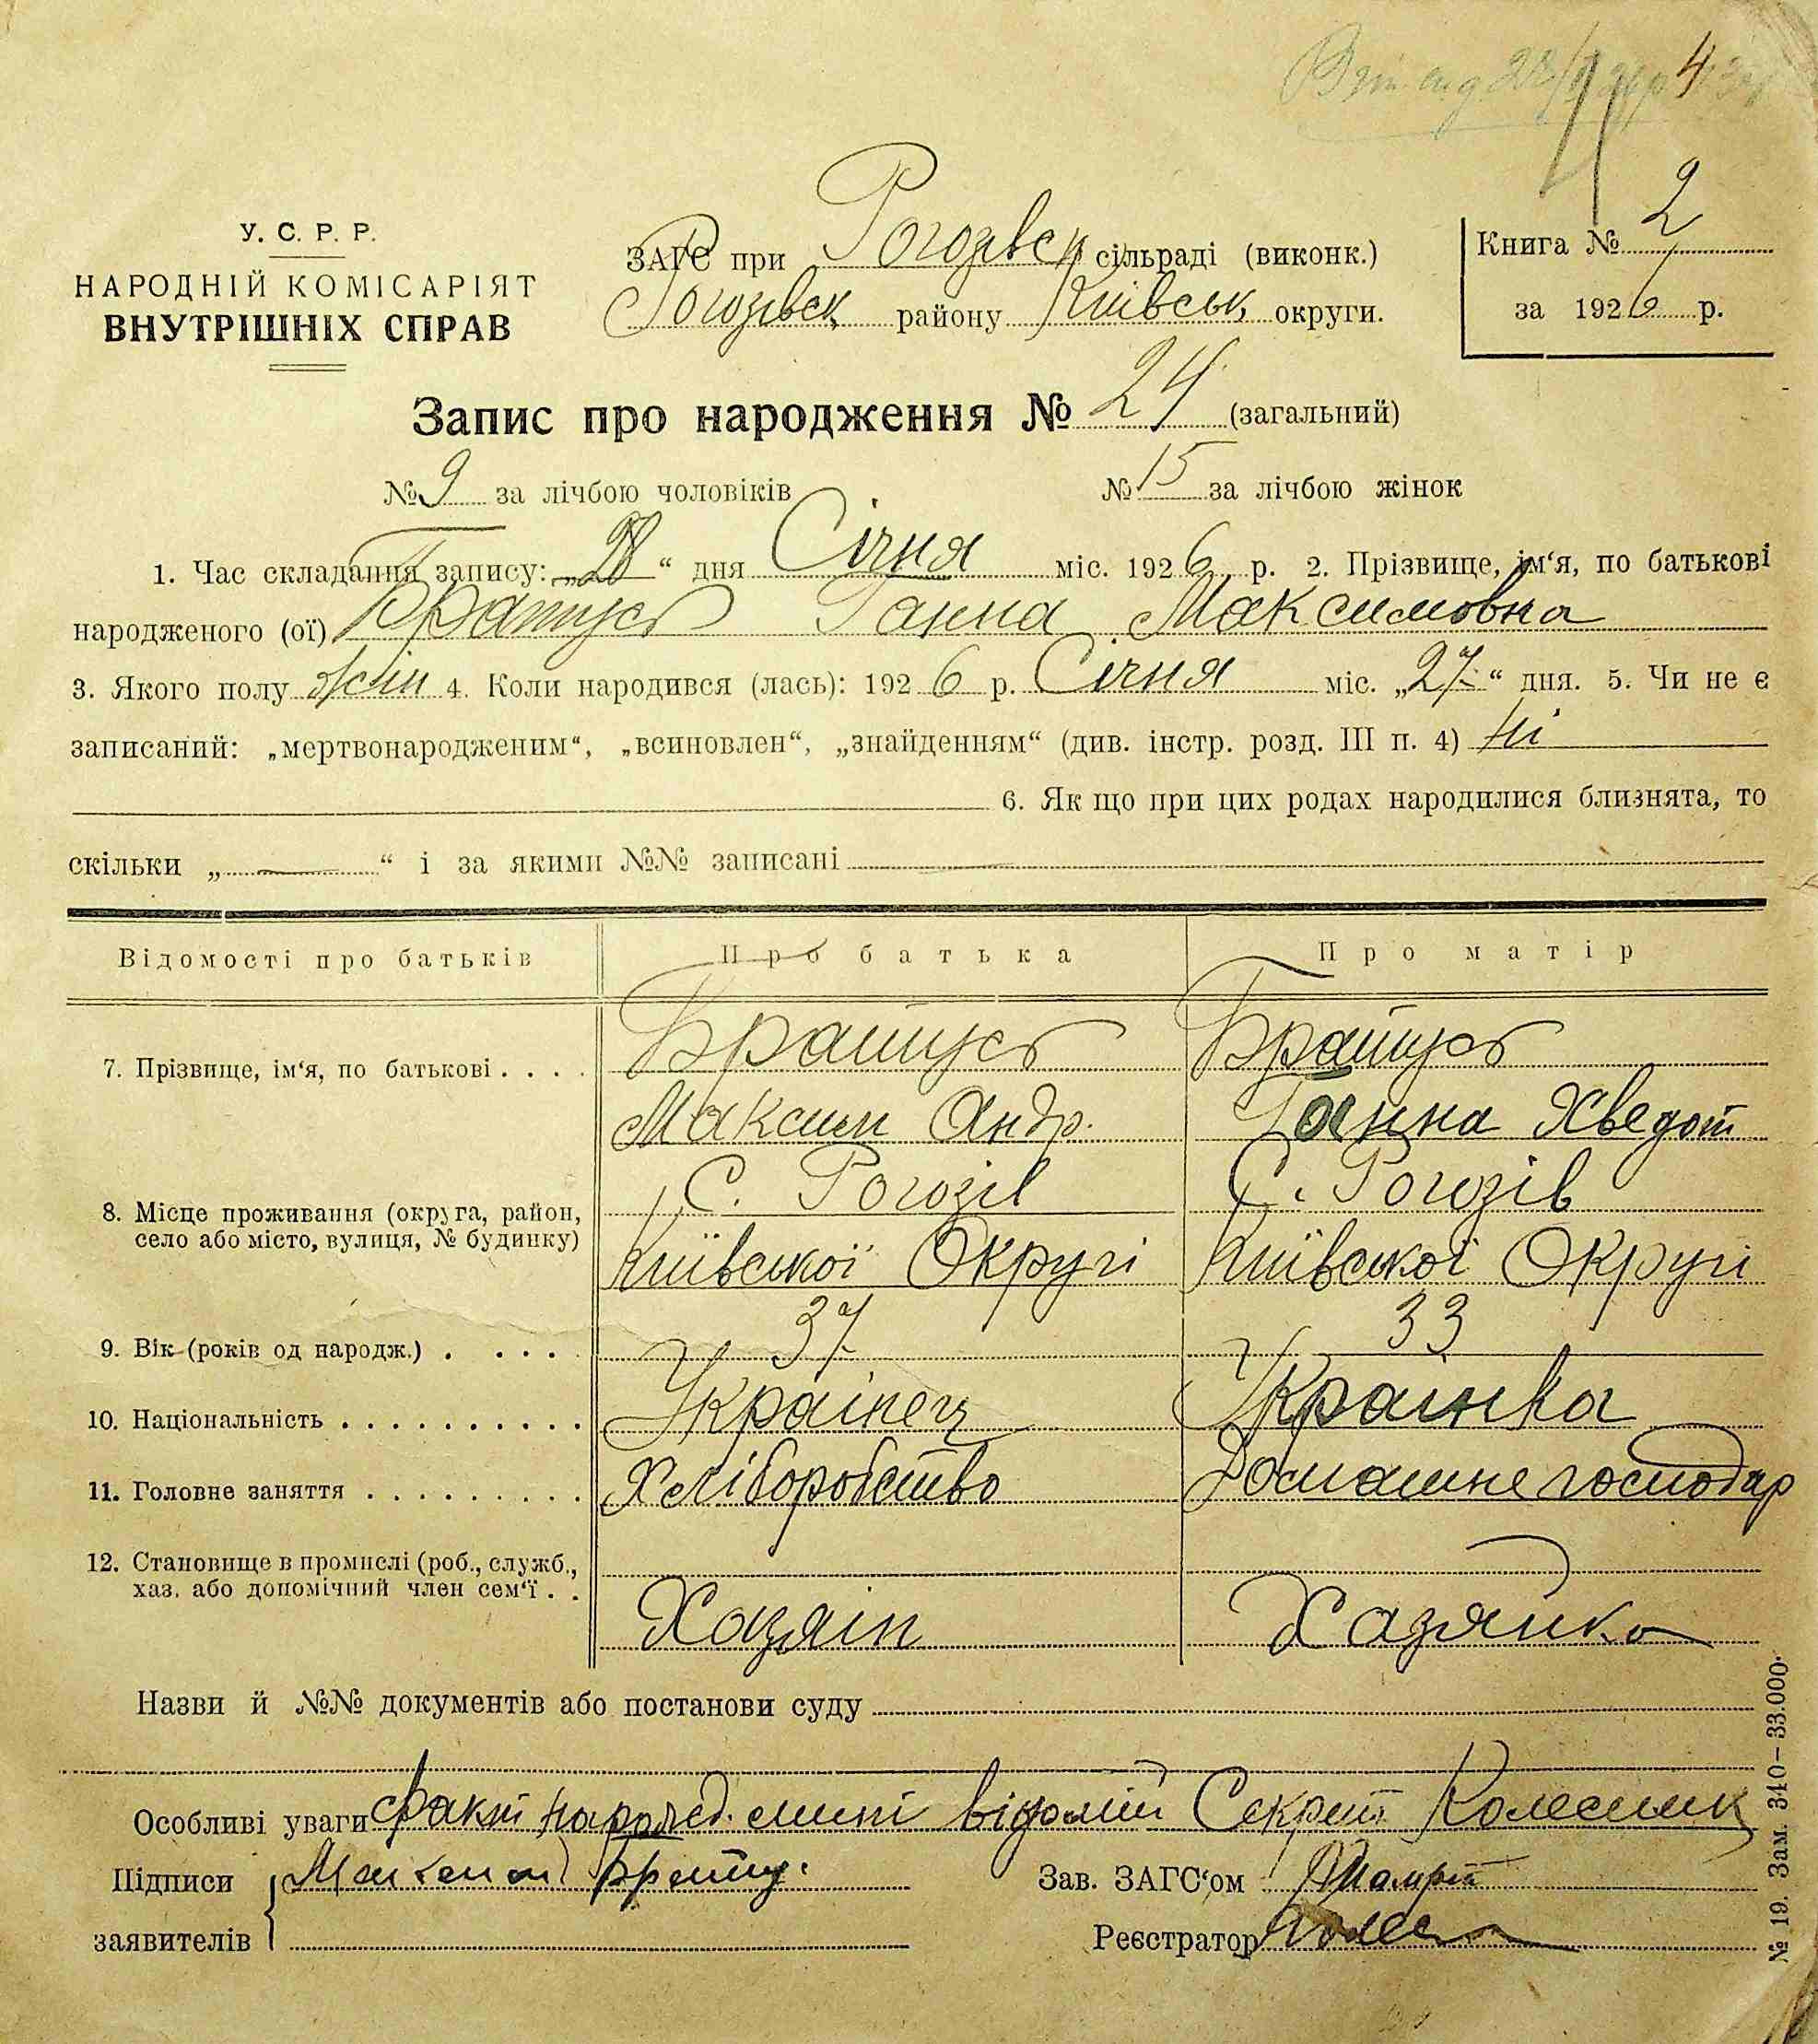 4
У. С. Р. Р.
НАРОДНІЙ КОМІСАРІЯТ
ВНУТРІШНІХ СПРАВ
ЗАГС при Рогозівськ сільраді (виконк.)
Рогозівск району Київськ округи.
Книга № 2
за 1926 р.
Запис про народження № 24 (загальний)
№ 9 за лічбою чоловіків № 15 за лічбою жінок
1. Час складання запису: „28“ дня Січня міс. 1926 р. 2. Прізвище, ім‘я, по батькові
народженого (ої) Братусь Ганна Максимовна
3. Якого полу жін 4. Коли народився (лась): 1926 р. Січня міс. „27“ дня. 5. Чи не є
записаний: „мертвонародженим“, „всиновлен“, „знайденням“ (див. інстр. розд. III п. 4) ні
6. Як що при цих родах народилися близнята, то
скільки „ — “ і за якими №№ записані —
Відомості про батьків Про батька Про матір
7. Прізвище, ім‘я, по батькові . . . . Братусь Братусь
Максим Андр. Ганна Хведот
8. Місце проживання (округа, район, село або місто, вулиця, № будинку) С. Рогозів С. Рогозів
Київської Округі Київської Округі
9. Вік (років од народж.) . . . . . 37 33
10. Національність . . . . . . . . . . Українец Українка
11. Головне заняття . . . . . . . . . Хліборобство Домашне господар
12. Становище в промислі (роб., служб.,
хаз. або допомічний член сем‘ї . . Хазяін Хазяйка
Назви й №№ документів або постанови суду
Особливі уваги Факт народ. мині відомий Секрет Колесник
Підписи заявителів Максим Брату.
Зав. ЗАГС‘ом
Реєстратор
№ 19. Зам. 340—33.000.